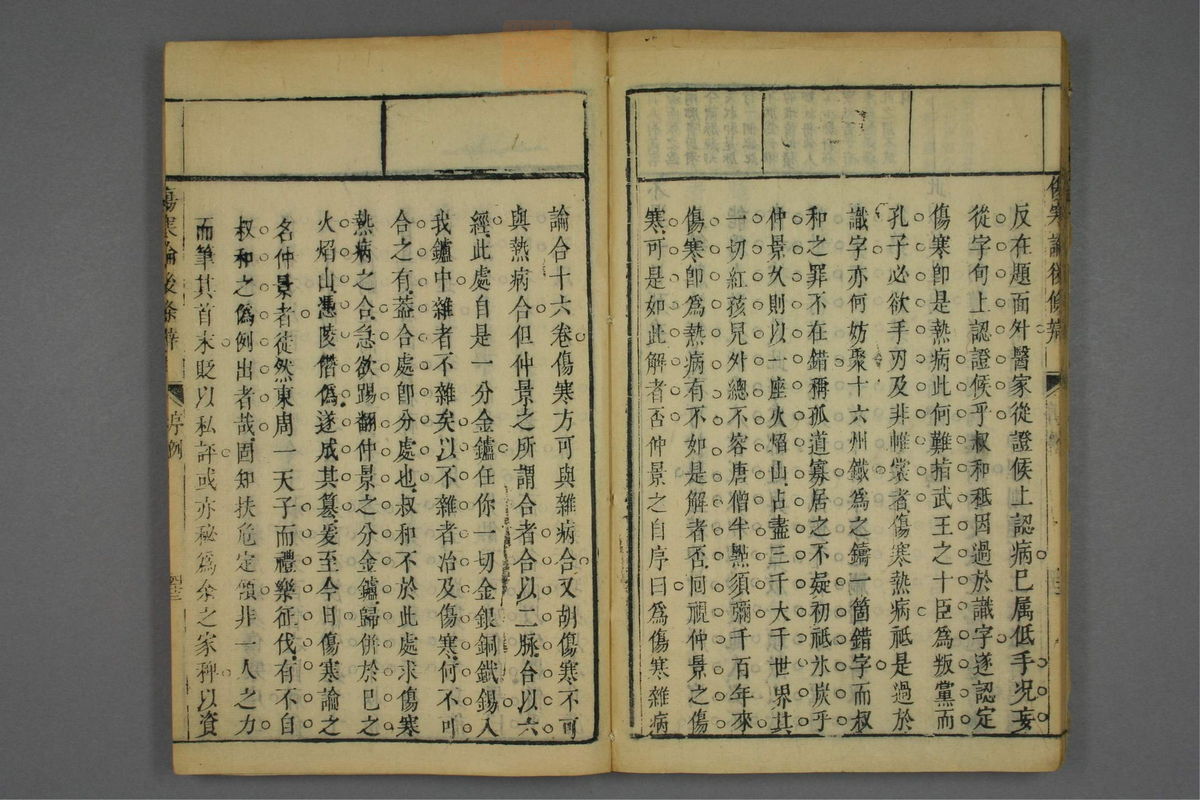 傷寒論後條辨
反在題面外醫家從證候上認病已属低手况妄
從字句上認證候乎叔和秪因過於識字遂認定
傷寒卽是熱病此何難指武王之十臣為叛黨而
孔子必欲手刃及非帷裳者傷寒熱病秪是過於
識字亦何妨聚十六州鐵為之鑄一箇錯字而叔
和之罪不在錯稱孤道寡居之不疑初秪氷炭乎
仲景久則以一座火焰山占盡三千大千世界其
一切紅孩兒外總不容唐僧半㸃須彌千百年來
傷寒卽為熱病有不如是解者否囘視仲景之傷
寒可是如此解者否仲景之自序曰為傷寒雜病
論合十六卷傷寒方可與雜病合又胡傷寒不可
與熱病合但仲景之所謂合者合以二脉合以六
經此處自是一分金鑪任你一切金銀銅鐵錫入
我鑪中雜者不雜矣以不雜者治及傷寒何不可
合之有葢合處卽分處也叔和不於此處求傷寒
熱病之合急欲踢翻仲景之分金鑪歸併於巳之
火焰山憑陵僭僞遂成其篡爰至今日傷寒論之
名仲景者徒然東周一天子而禮樂征伐有不自
叔和之僞例出者哉固知扶危定傾非一人之力
而筆其首末貶以私評或亦秘為余之家稗以資
傷寒論後條辨
序例